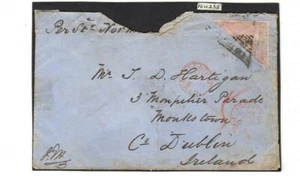 Per Str. Nor
Mr T. D. Hartigan
3 Montpelier Parade
Monkstown
Co Dublin
Ireland